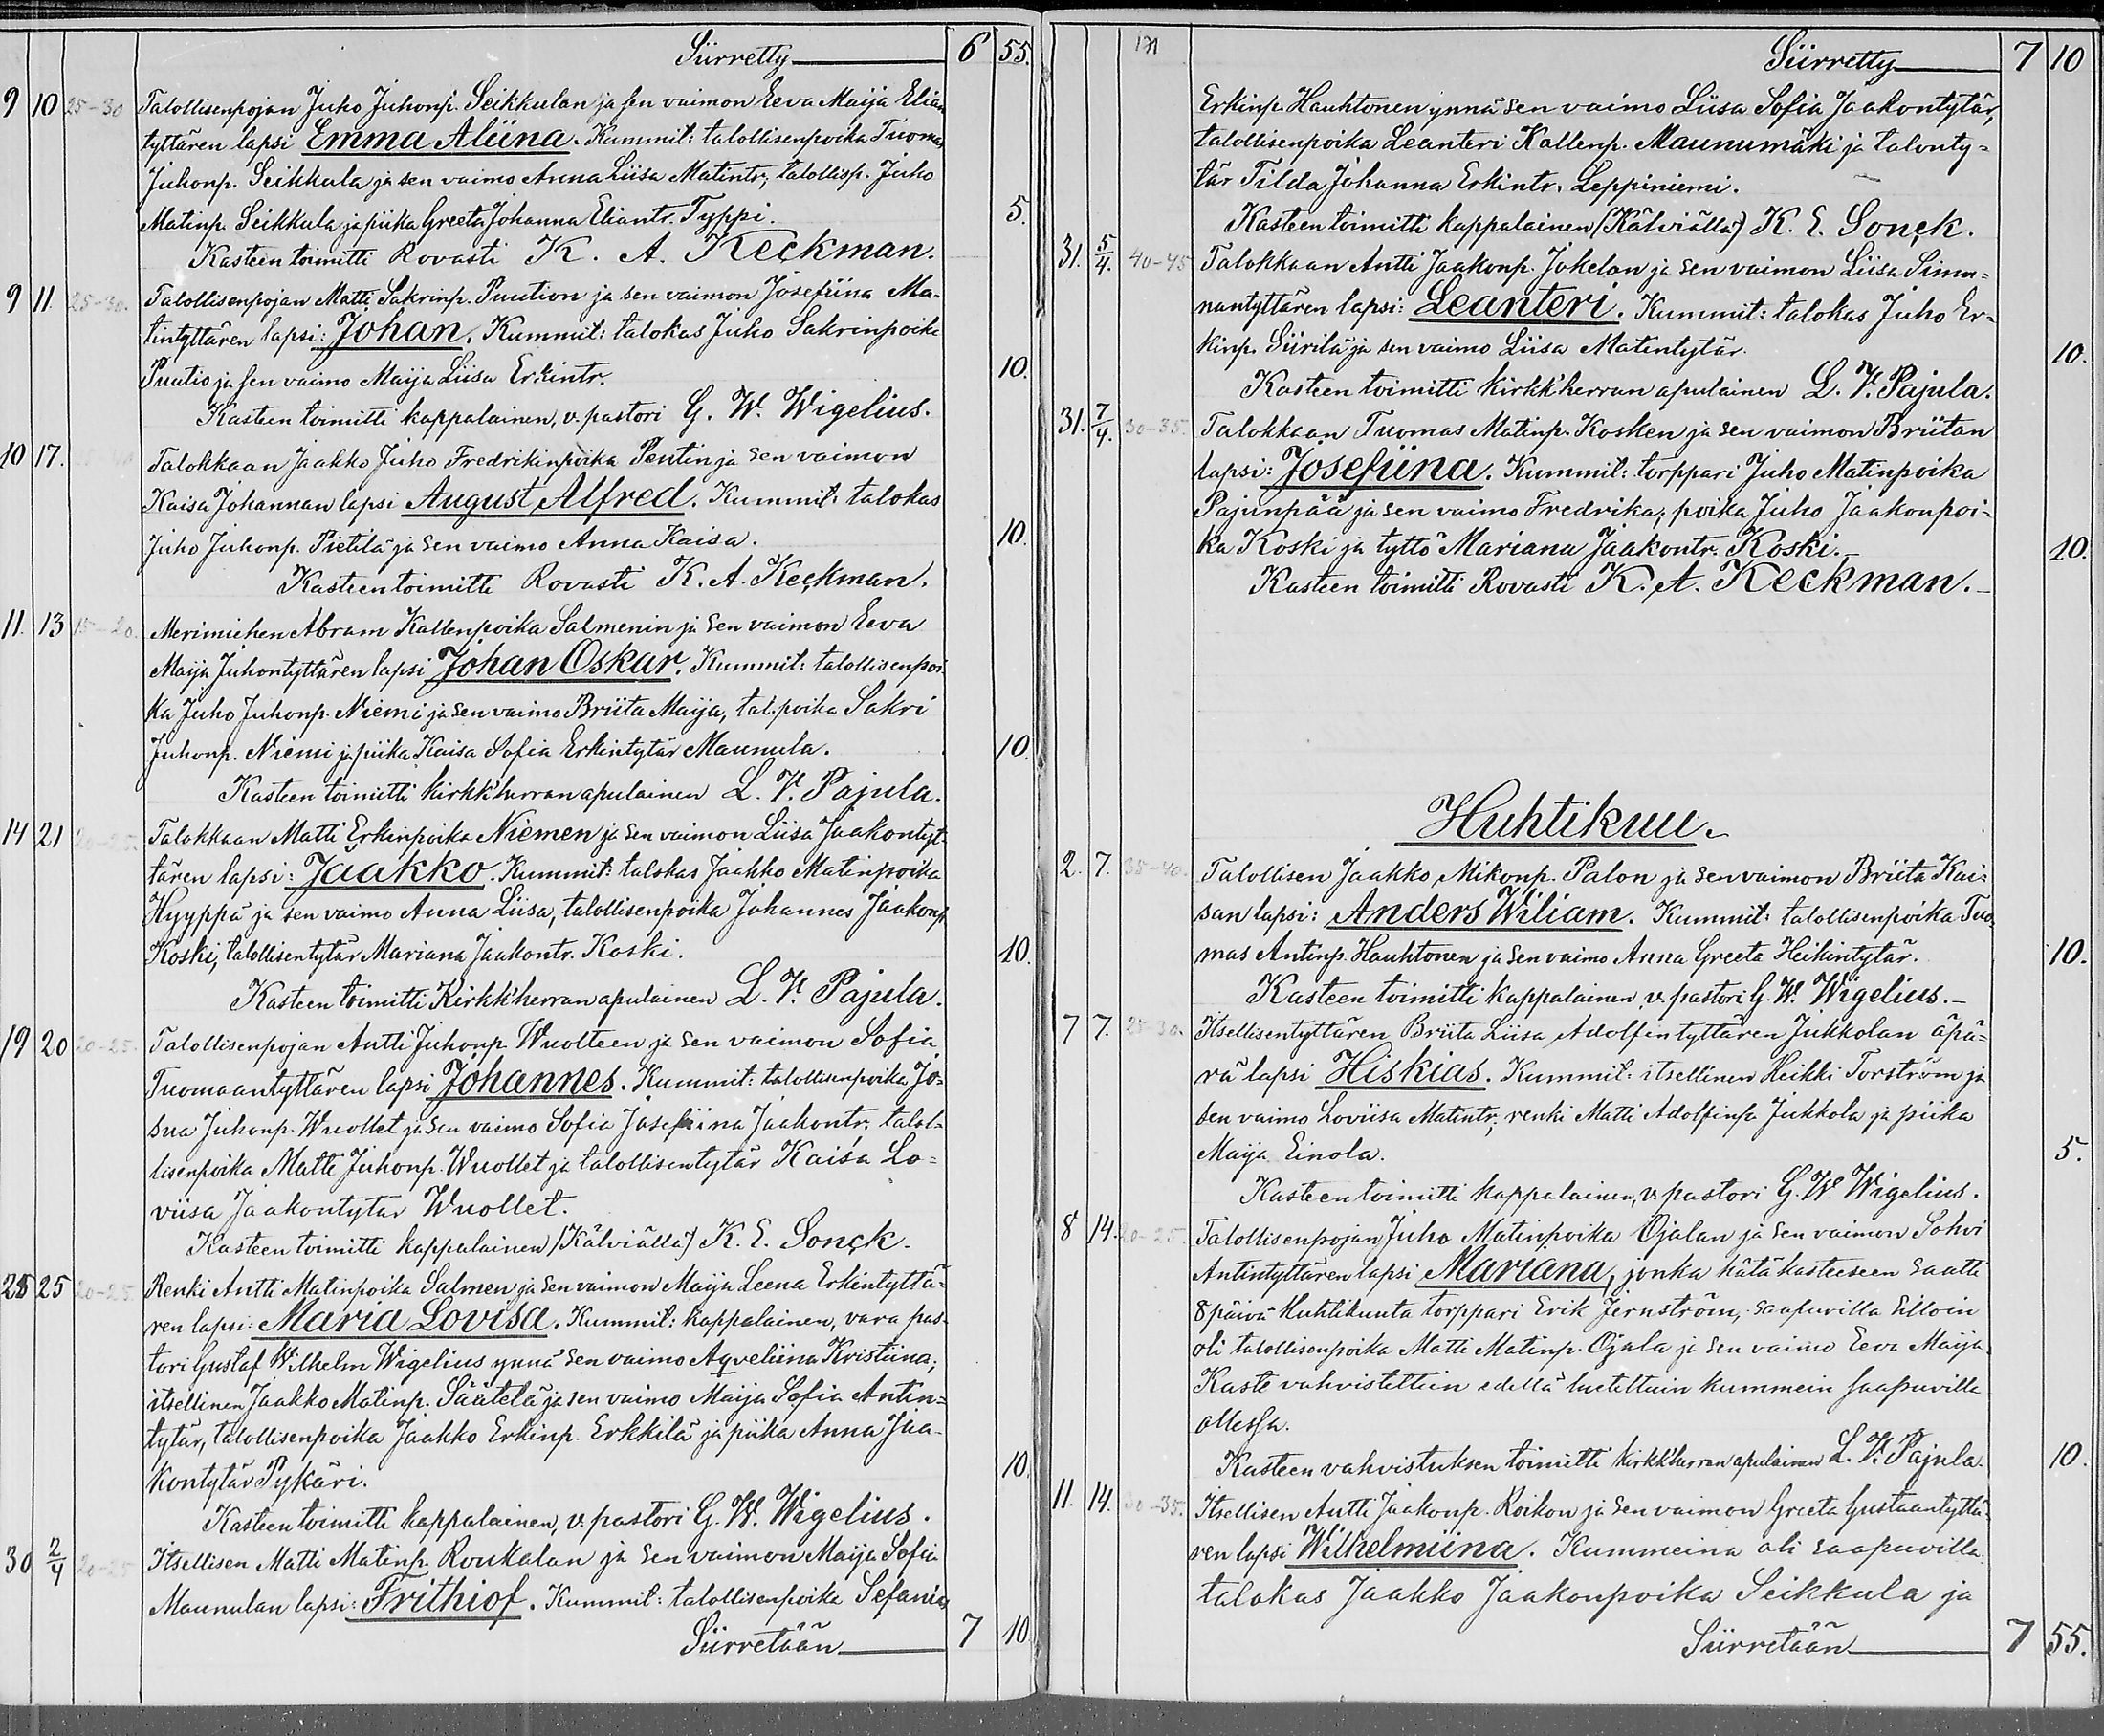 Siirretty 6 55.
9 10 25-30 Talollisenpojan Juho Juhonp. Seikkulan ja sen vaimon Eeva Maija Elian
tyttären lapsi Emma Aliina. Kummit: talollisenpoika Tuomas
Juhonp. Seikkula ja sen vaimo Anna Liisa Matintr; talollisp. Juho
Matinp. Seikkula ja piika Greeta Johanna Eliantr. Typpi. 5.
Kasteen toimitti Rovasti K. A. Keckman.
9 11 25-30. Talollisenpojan Matti Sakrinp. Puution ja sen vaimon Josefiina Ma-
tintyttären lapsi: Johan. Kummit: talokas Juho Sakrinpoika
Puutio ja sen vaimo Maija Liisa Erkintr. 10.
Kasteen toimitti kappalainen, v. pastori G. W. Wigelius.
10 17. Talokkaan Jaakko Juho Fredrikinpoika Pentin ja sen vaimon
Kaisa Johannan lapsi August Alfred. Kummit: talokas
Juho Juhonp. Pietilä ja sen vaimo Anna Kaisa. 10.
Kasteen toimitti Rovasti K. A. Keckman.
11. 13 15-20. Merimiehen Abram Kallenpoika Salmenin ja sen vaimon Eeva
Maija Juhontyttären lapsi Johan Oskar. Kummit: talollisenpoi-
ka Juho Juhonp. Niemi ja sen vaimo Briita Maija, tal.poika Sakri
Juhonp. Niemi ja piika Kaisa Sofia Erkintytär Maunula. 10.
Kasteen toimitti kirkk'herran apulainen L. V. Pajula.
14 21 20-25. Talokkaan Matti Erkinpoika Niemen ja sen vaimon Liisa Jaakontyt-
tären lapsi: Jaakko. Kummit: talokas Jaakko Matinpoika
Hyyppä ja sen vaimo Anna Liisa, talollisenpoika Johannes Jaakonp.
Koski, talollisentytär Mariana Jaakontr. Koski. 10.
Kasteen toimitti Kirkk'herran apulainen L. V. Pajula.
19 20 20-25. Talollisenpojan Antti Juhonp Wuolteen ja sen vaimon Sofia
Tuomaantyttären lapsi Johannes. Kummit: talollisenpoika Jo-
sua Juhonp. Wuollet ja sen vaimo Sofia Josefiina Jaakontr; talol-
lisenpoika Matti Juhonp. Wuollet ja talollisentytär Kaisa Lo-
viisa Jaakontytär Wuollet.
Kasteen toimitti kappalainen (Kälviällä) K. E. Sonck.
25 25 20-25 Renki Antti Matinpoika Salmen ja sen vaimon Maija Leena Erkintyttä-
ren lapsi: Maria Lovisa. Kummit: kappalainen, vara pas-
tori Gustaf Wilhelm Wigelius ynnä sen vaimo Aqveliina Kristiina;
itsellinen Jaakko Matinp. Säätelä ja sen vaimo Maija Sofia Antin-
tytär, talollisenpoika Jaakko Erkinp. Erkkilä ja piika Anna Jaa-
kontytär Pykäri. 10.
Kasteen toimitti kappalainen, v. pastori G. W. Wigelius.
30 2/4 20-25 Itsellisen Matti Matinp. Roukalan ja sen vaimon Maija Sofia
Maunulan lapsi: Frithiof. Kummit: talollisenpoika Sefanias
Siirretään 7 10
171 Siirretty 7 10
Erkinp. Hauhtonen ynnä sen vaimo Liisa Sofia Jaakontytär,
talollisenpoika Leanteri Kallenp. Maunumäki ja talonty-
tär Tilda Johanna Erkintr. Leppiniemi.
Kasteen toimitti kappalainen (Kälviällä) K. E. Sonck.
31. 5/4. 40-45 Talokkaan Antti Jaakonp. Jokelan ja sen vaimon Liisa Simu-
nantyttären lapsi: Leanteri. Kummit: talokas Juho Er-
kinp. Siirilä ja sen vaimo Liisa Matintytär. 10.
Kasteen toimitti kirkk'herran apulainen L. V. Pajula.
31. 7/4. 30-35. Talokkaan Tuomas Matinp. Kosken ja sen vaimon Briitan
lapsi: Josefiina. Kummit: torppari Juho Matinpoika
Pajunpää ja sen vaimo Fredrika; poika Juho Jaakonpoi-
ka Koski ja tyttö Mariana Jaakontr. Koski. 10.
Kasteen toimitti Rovasti K. A. Keckman.
Huhtikuu.
2. 7. 35-40. Talollisen Jaakko Mikonp. Palon ja sen vaimon Briita Kai-
san lapsi: Anders Wiliam. Kummit: talollisenpoika Tuo-
mas Antinp. Hauhtonen ja sen vaimo Anna Greeta Heikintytär. 10.
Kasteen toimitti kappalainen, v. pastori G. W. Wigelius.
7 7. 25-30. Itsellisentyttären Briita Liisa Adolfintyttären Jukkolan äpä-
rä lapsi Hiskias. Kummit: itsellinen Heikki Torström ja
sen vaimo Loviisa Matintr; renki Matti Adolfinp. Jukkola ja piika
Maija Einola. 5.
Kasteen toimitti kappalainen, v. pastori G. W. Wigelius.
8 14. 20-25. Talollisenpojan Juho Matinpoika Ojalan ja sen vaimon Sohvi
Antintyttären lapsi Mariana, jonka hätäkasteeseen saatti
8 päivä Huhtikuuta torppari Erik Jernström, saapuvilla silloin
oli talollisenpoika Matti Matinp. Ojala ja sen vaimo Eeva Maija.
Kaste vahvistettiin edellä lueteltuin kummein saapuvilla
ollessa.
Kasteen vahvistuksen toimitti kirkk'herran apulainen L. V. Pajula. 10.
11. 14. 30-35. Itsellisen Antti Jaakonp. Roikon ja sen vaimon Greeta Gustaantyttä-
ren lapsi Wilhelmiina. Kummeina oli saapuvilla
talokas Jaakko Jaakonpoika Seikkula ja
Siirretään 7 55.